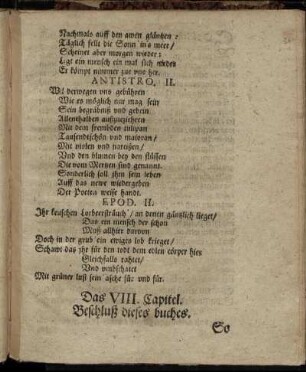 Nachmals auff den awen glüntzen:
Täglich felt die Sonn ins meer/
Scheinet aber morgen wieder:
Ligt ein mensch ein mal sich nieder
Er kömpt nimmer zue vns her.
ANTISTRO. II.
Wil derwegen vns gebühren
Wie es möglich nur mag sein
Sein begräbnüß vnd gebein
Allenthalben außzuezieren
Mit dem frembden tulipan
Tausendschön vnd maioran/
Mit violen vnd narcissen/
Vnd den blumen bey den flüssen
Die vom Meyen sind genannt.
Sonderlich soll jhm sein leben
Auff das newe wiedergeben
Der Poeten weise handt.
EPOD. II.
Ihr keuschen Lorbeersträuch'/ an denen gäntzlich lieget/
Das ein mensch der schon
Muß allhier darvon
Doch in der grub' ein ewiges lob krieget/
Schawt das jhr für den todt dem edlen cörper hier
Gleichfalls rahtet/
Vnd vmbschatet
Mit grüner lust sein' asche für vnd für.
Das VIII. Capitel.
Beschluß dieses buches.
So